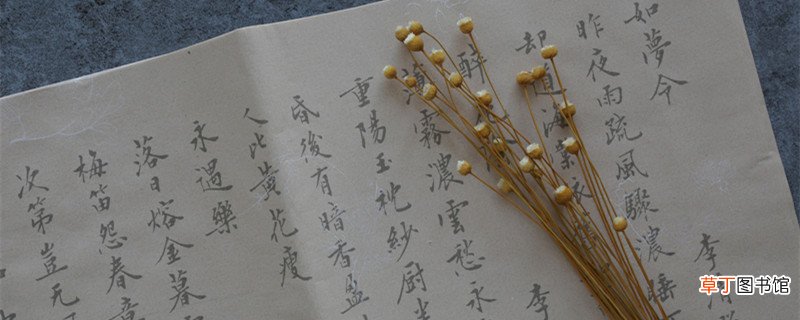 如夢令 李清
昨夜雨疏風驟濃睡
却道海棠依舊
醉 李
薄霧濃雲愁永
重陽玉枕紗厨半
昏後有暗香盈
人比黃花瘦
永遇樂
落日熔金暮
梅笛怨春意
次第豈无
草丁图书馆